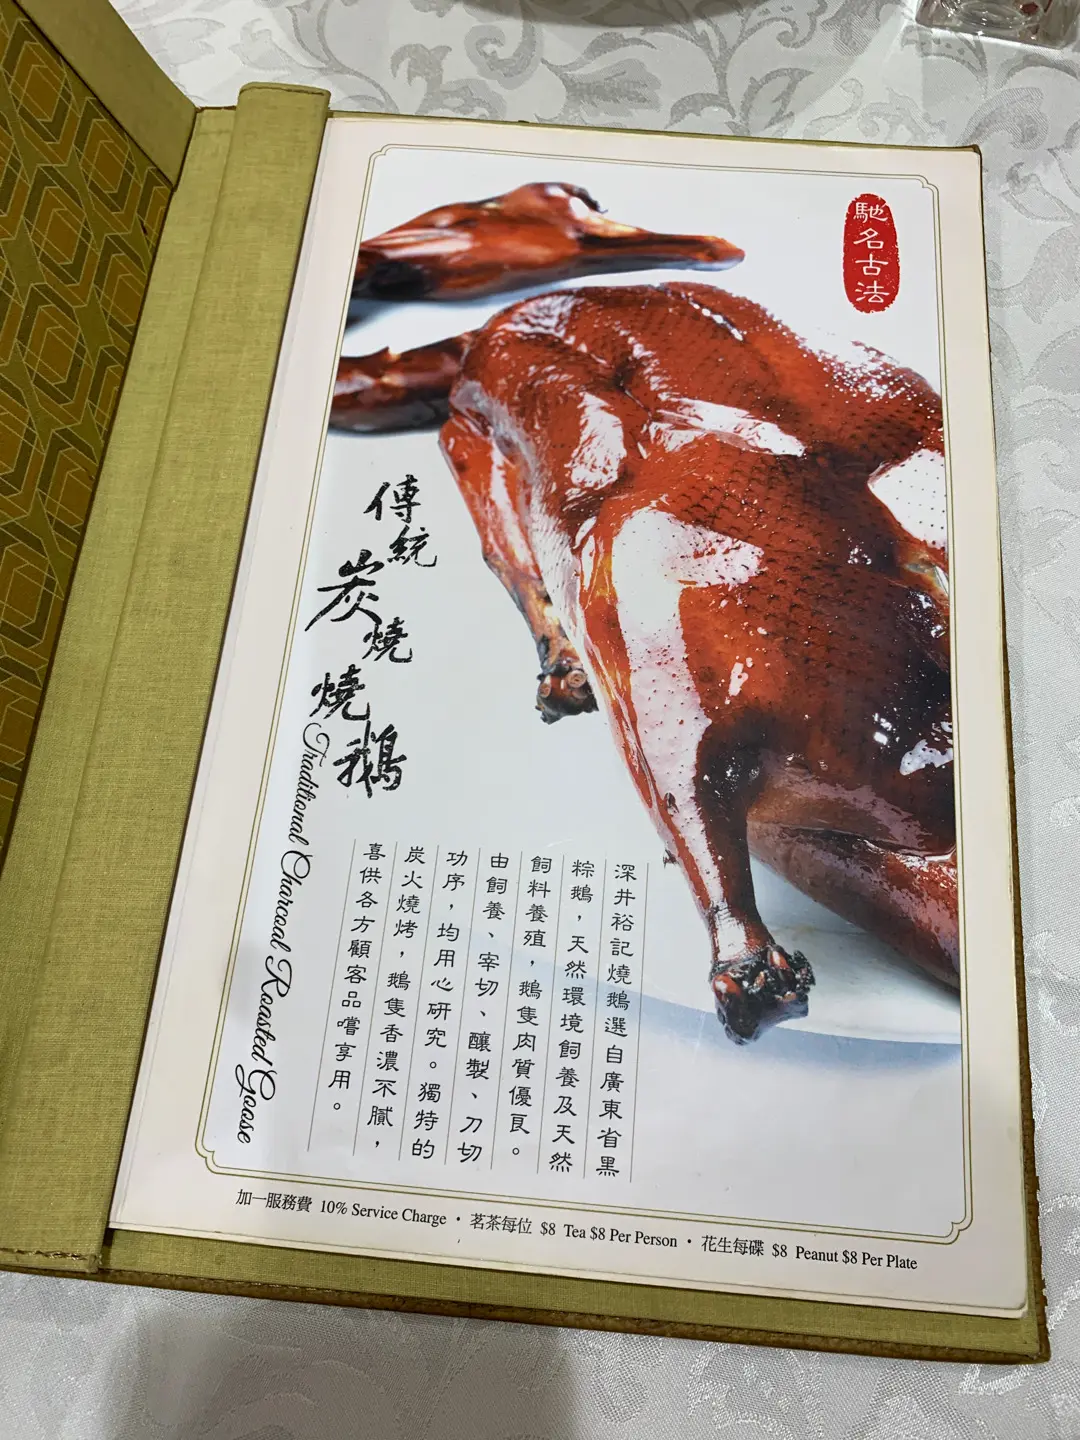 馳名古法
傳統
炭燒
燒鵝
Traditional Charcoal Roasted Goose
深井裕記燒鵝選自廣東省黑
粽鵝，天然環境飼養及天然
飼料養殖，鵝隻肉質優良。
由飼養、宰切、釀製、刀切
功序，均用心研究。獨特的
炭火燒烤，鵝隻香濃不膩，
喜供各方顧客品嚐享用。
加一服務費 10% Service Charge · 茗茶每位 $8 Tea $8 Per Person · 花生每碟 $8 Peanut $8 Per Plate